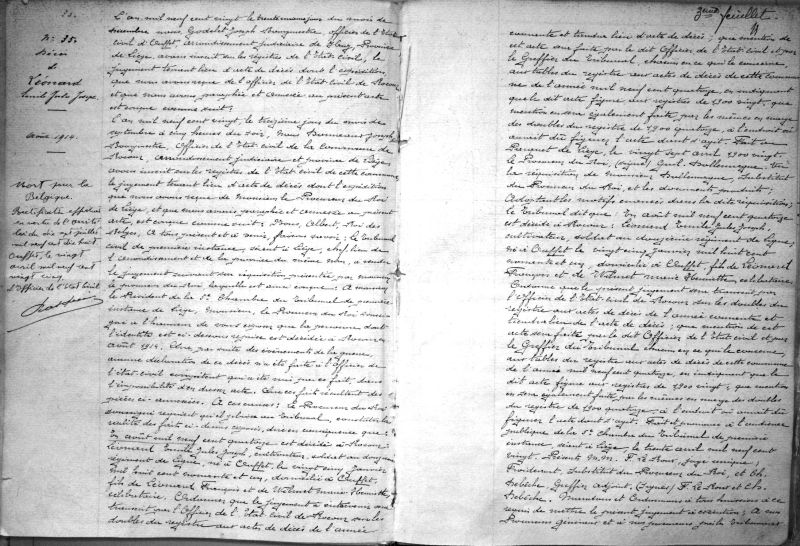 N° 35.
Décès
de
Léonard
Emile Jules Joseph.
Août 1914.
Mort pour la
Belgique.
Rectification effectuée
en vertu de l'arrêté
loi du dix sept juillet
mil neuf cent dix huit
Ouffet, le vingt
avril mil neuf cent
vingt cinq
L'Officier de l'Etat Civil
L'an mil neuf cent vingt le trente unième jour du mois de
décembre nous, Godelet Joseph Bourgmestre, officier de l'Etat
civil d'Ouffet, arrondissement judiciaire de Huy, Province
de Liège, avons inscrit sur les registres de l'Etat civil, le
jugement tenant lieu d'acte de décès dont l'expédition
que nous avons reçue de l'officier de l'Etat civil de Rocour
et que nous avons paraphée et annexée au présent acte
est conçue comme suit:
L'an mil neuf cent vingt, le treizième jour du mois de
septembre à cinq heures du soir, nous Joseph
Bourgmestre, Officier de l'Etat Civil de la Commune de
Rocour, arrondissement judiciaire et province de Liège
avons inscrit sur les registres de l'Etat civil de cette commune
le jugement tenant lieu d'acte de décès dont l'expédition
que nous avons reçue de Monsieur le Procureur du Roi
de Liège, et que nous avons paraphée et annexée au présent
acte, est conçue comme suit: Nous, Albert, Roi des
Belges, A tous présents et à venir, faisons savoir: le Tribunal
civil de première instance, séant à Liège, chef lieu de
l'arrondissement et de la province du même nom, a rendu
le jugement suivant sur réquisition présentée par Monsieur
le procureur du Roi, laquelle est ainsi conçue: A Monsieur
le Président de la 1e Chambre du Tribunal de première
instance de Liège, Monsieur, le Procureur du Roi soussigné
a l'honneur de vous exposer que la personne dont
l'identité est ci-dessous reprise est décédée à Rocour
Août 1914. Que par suite des événements de la guerre,
aucune déclaration de ce décès n'a été faite à l'Officier de
l'état civil compétent qui a été mis par ce fait, dans
l'impossibilité d'en dresser acte. Que ces faits résultent des
pièces ci-annexées. A ces causes: le Procureur du Roi
soussigné requiert qu'il plaise au Tribunal, considérant la
réalité des faits ci-dessus exposés, dire en conséquence que:
En août mil neuf cent quatorze est décédé à Rocour:
Léonard Emile Jules Joseph, cultivateur, soldat au douzième
régiment de ligne, né à Ouffet, le vingt cinq Janvier
mil huit cent nonante et cinq, domicilié à Ouffet,
fils de Léonard François et de Walmet Marie Henriette,
célibataire. Ordonner que le jugement à intervenir sera
transcrit par l'Officier de l'Etat Civil de Rocour sur les
doubles du registre aux actes de décès de l'année
feuillet
courante et tiendra lieu d'acte de décès; que mention de
cet acte sera faite, par le dit Officier de l'Etat civil et par
le Greffier du Tribunal, chacun en ce qui le concerne,
aux tables du registre aux actes de décès de cette commune
de l'année mil neuf cent quatorze, en indiquant
que le dit acte figure aux registres de 1900 vingt, que
mention en sera également faite, par les mêmes en marge
des doubles du registre de 1900 quatorze, à l'endroit où
aurait dû figurer l'acte dont s'agit. Fait au
Parquet de Liège, le vingt sept avril 1900 vingt.
Le Procureur du Roi,
la réquisition de Monsieur Substitut
du Procureur du Roi, et les documents produits,
Adoptant les motifs énoncés dans la dite réquisition;
le Tribunal dit que: En août mil neuf cent quatorze
est décédé à Rocour: Léonard Emile Jules Joseph,
cultivateur, soldat au douzième régiment de ligne,
né à Ouffet le vingt cinq Janvier mil huit cent
nonante et cinq, domicilié à Ouffet, fils de Léonard
François et de Walmet Marie Henriette, célibataire.
Ordonne que le présent jugement sera transcrit par
l'Officier de l'Etat Civil de Rocour sur les doubles du
registre aux actes de décès de l'année courante et
tiendra lieu de l'acte de décès; que mention de cet
acte sera faite par le dit Officier de l'Etat Civil et par
le Greffier du Tribunal chacun en ce qui le concerne,
aux tables du registre aux actes de décès de cette commune
de l'année mil neuf cent quatorze, en indiquant que le
dit acte figure aux registres de 1900 vingt; que mention
en sera également faite, par les mêmes en marge des doubles
du registre de 1900 quatorze, à l'endroit où aurait dû
figurer l'acte dont s'agit. Fait et prononcé à l'audience
publique de la 1e Chambre du Tribunal de première
instance, séant à Liège, le trente avril mil neuf cent
vingt. Présents M.M. F. Le Roux, juge unique,
Froidcourt, Substitut du Procureur du Roi, et Ch.
Debêche, Greffier adjoint. (Signés) F. Le Roux et Ch.
Debêche. Mandons et Ordonnons à tous huissiers à ce
requis de mettre le présent jugement à exécution; A nos
Procureurs généraux et à nos procureurs près les tribunaux